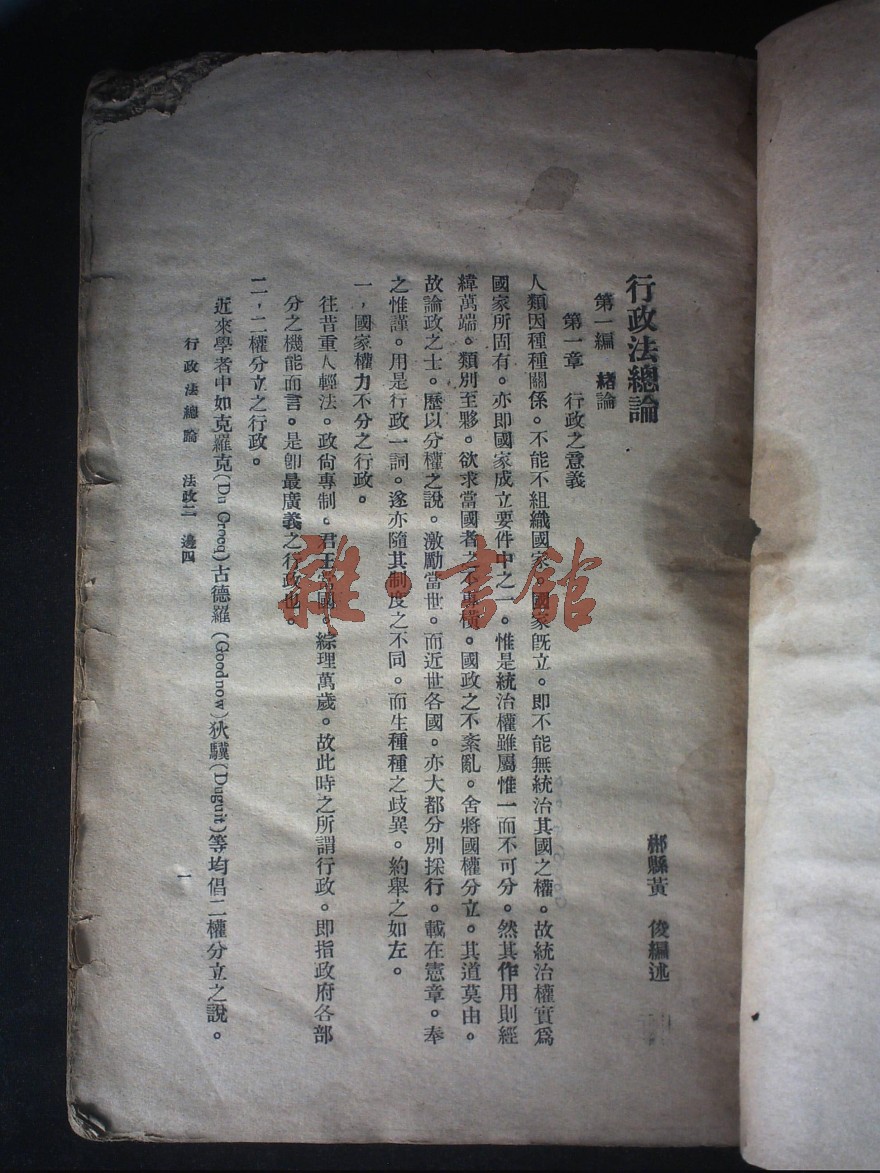 行政法總論
郴縣黃　俊編述
第一編　緒論
第一章　行政之意義
人類因種種關係。不能不組織國家。國家旣立。即不能無統治其國之權。故統治權實爲
國家所固有。亦即國家成立要件中之一。惟是統治權雖屬惟一而不可分。然其作用則經
緯萬端。類別至夥。欲求當國者之不專橫。國政之不紊亂。舍將國權分立。其道莫由。
故論政之士。歷以分權之說。激勵當世。而近世各國。亦大都分別採行。載在憲章。奉
之惟謹。用是行政一詞。遂亦隨其制度之不同。而生種種之歧異。約舉之如左。
一，國家權力不分之行政。
往昔重人輕法。政尙專制。君王當國。綜理萬歲。故此時之所謂行政。即指政府各部
分之機能而言。是卽最廣義之行政也。
二，二權分立之行政。
近來學者中如克羅克(Du Crocq)古德羅(Goodnow)狄驥(Duguit)等均倡二權分立之說。
行政法總論　法政二　邊四
一
雜·書館